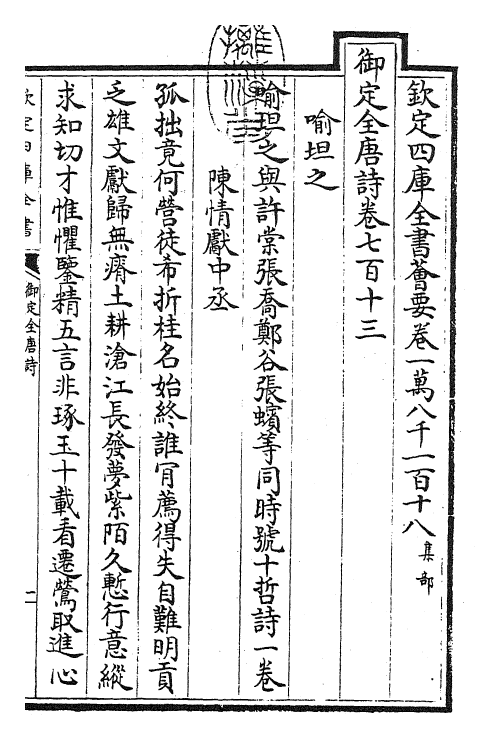 欽定四庫全書薈要卷一萬八千一百十八 集部
御定全唐詩卷七百十三
喻坦之
喻坦之與許棠張喬鄭谷張蠙等同時號十哲詩一卷
陳情獻中丞
孤拙竟何營徒希折桂名始終誰肎薦得失自難明貢
乏雄文獻歸無瘠土耕滄江長發夢紫陌久慙行意縱
求知切才惟懼鑒精五言非琢玉十載看遷鶯取進心
欽定四庫全書
御定全唐詩